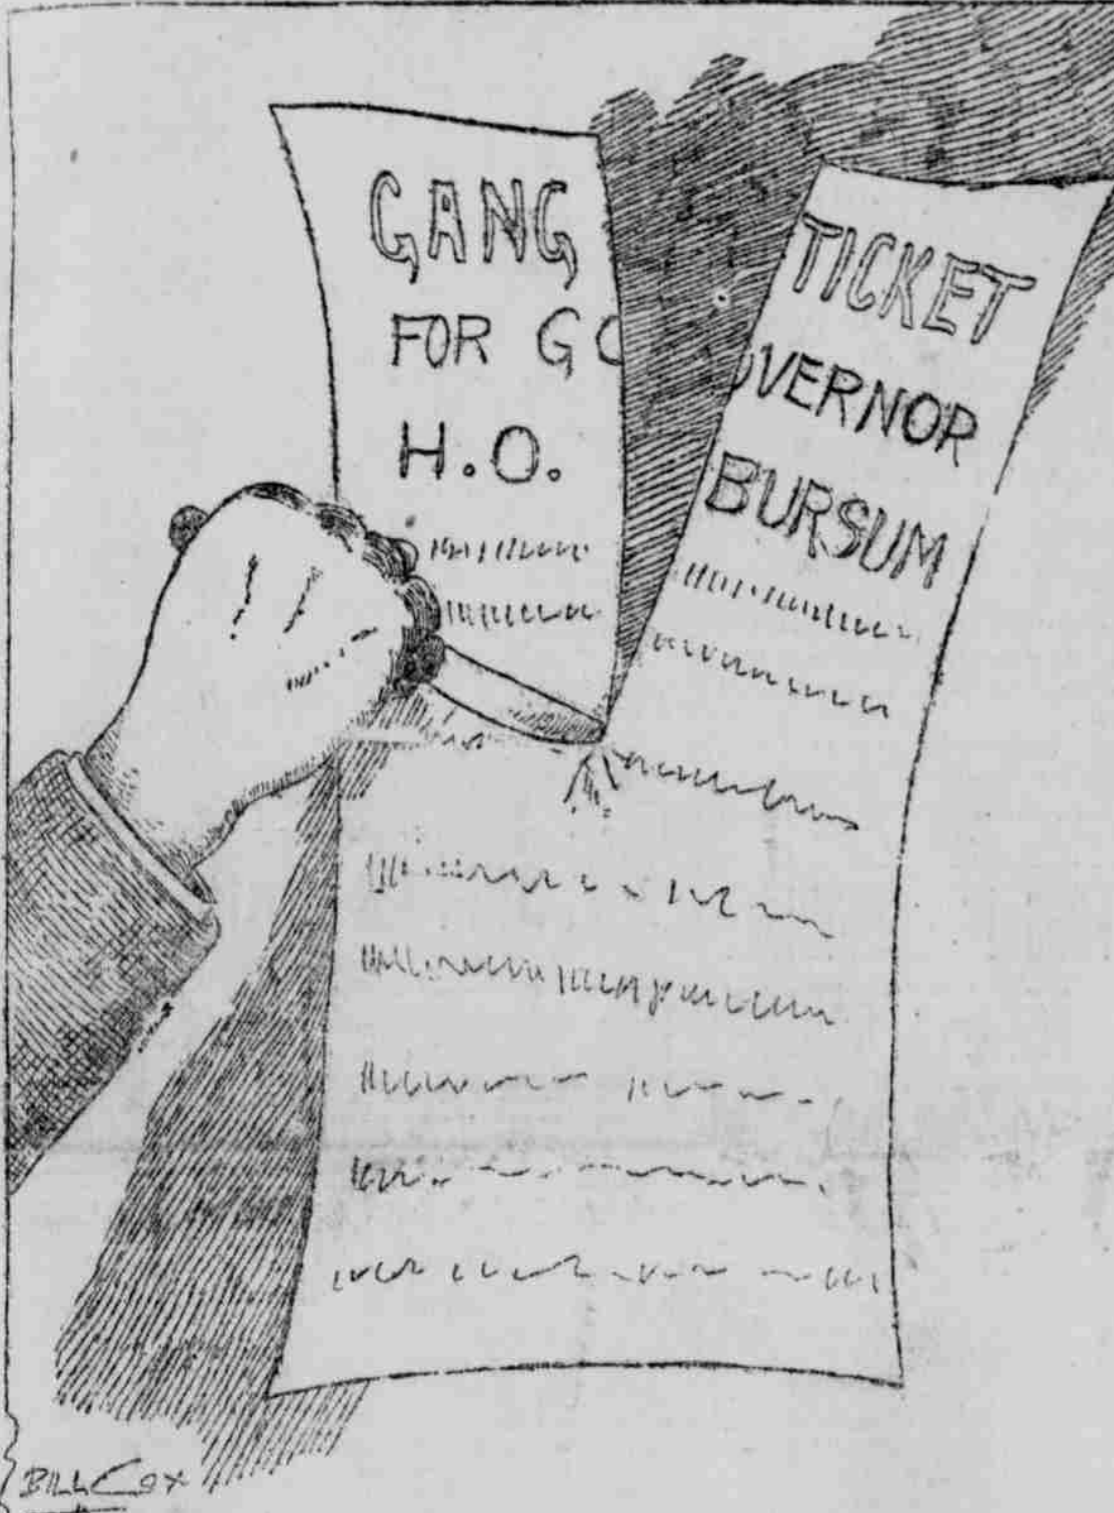 GANG TICKET
FOR GOVERNOR
H.O. BURSUM
BILL COX